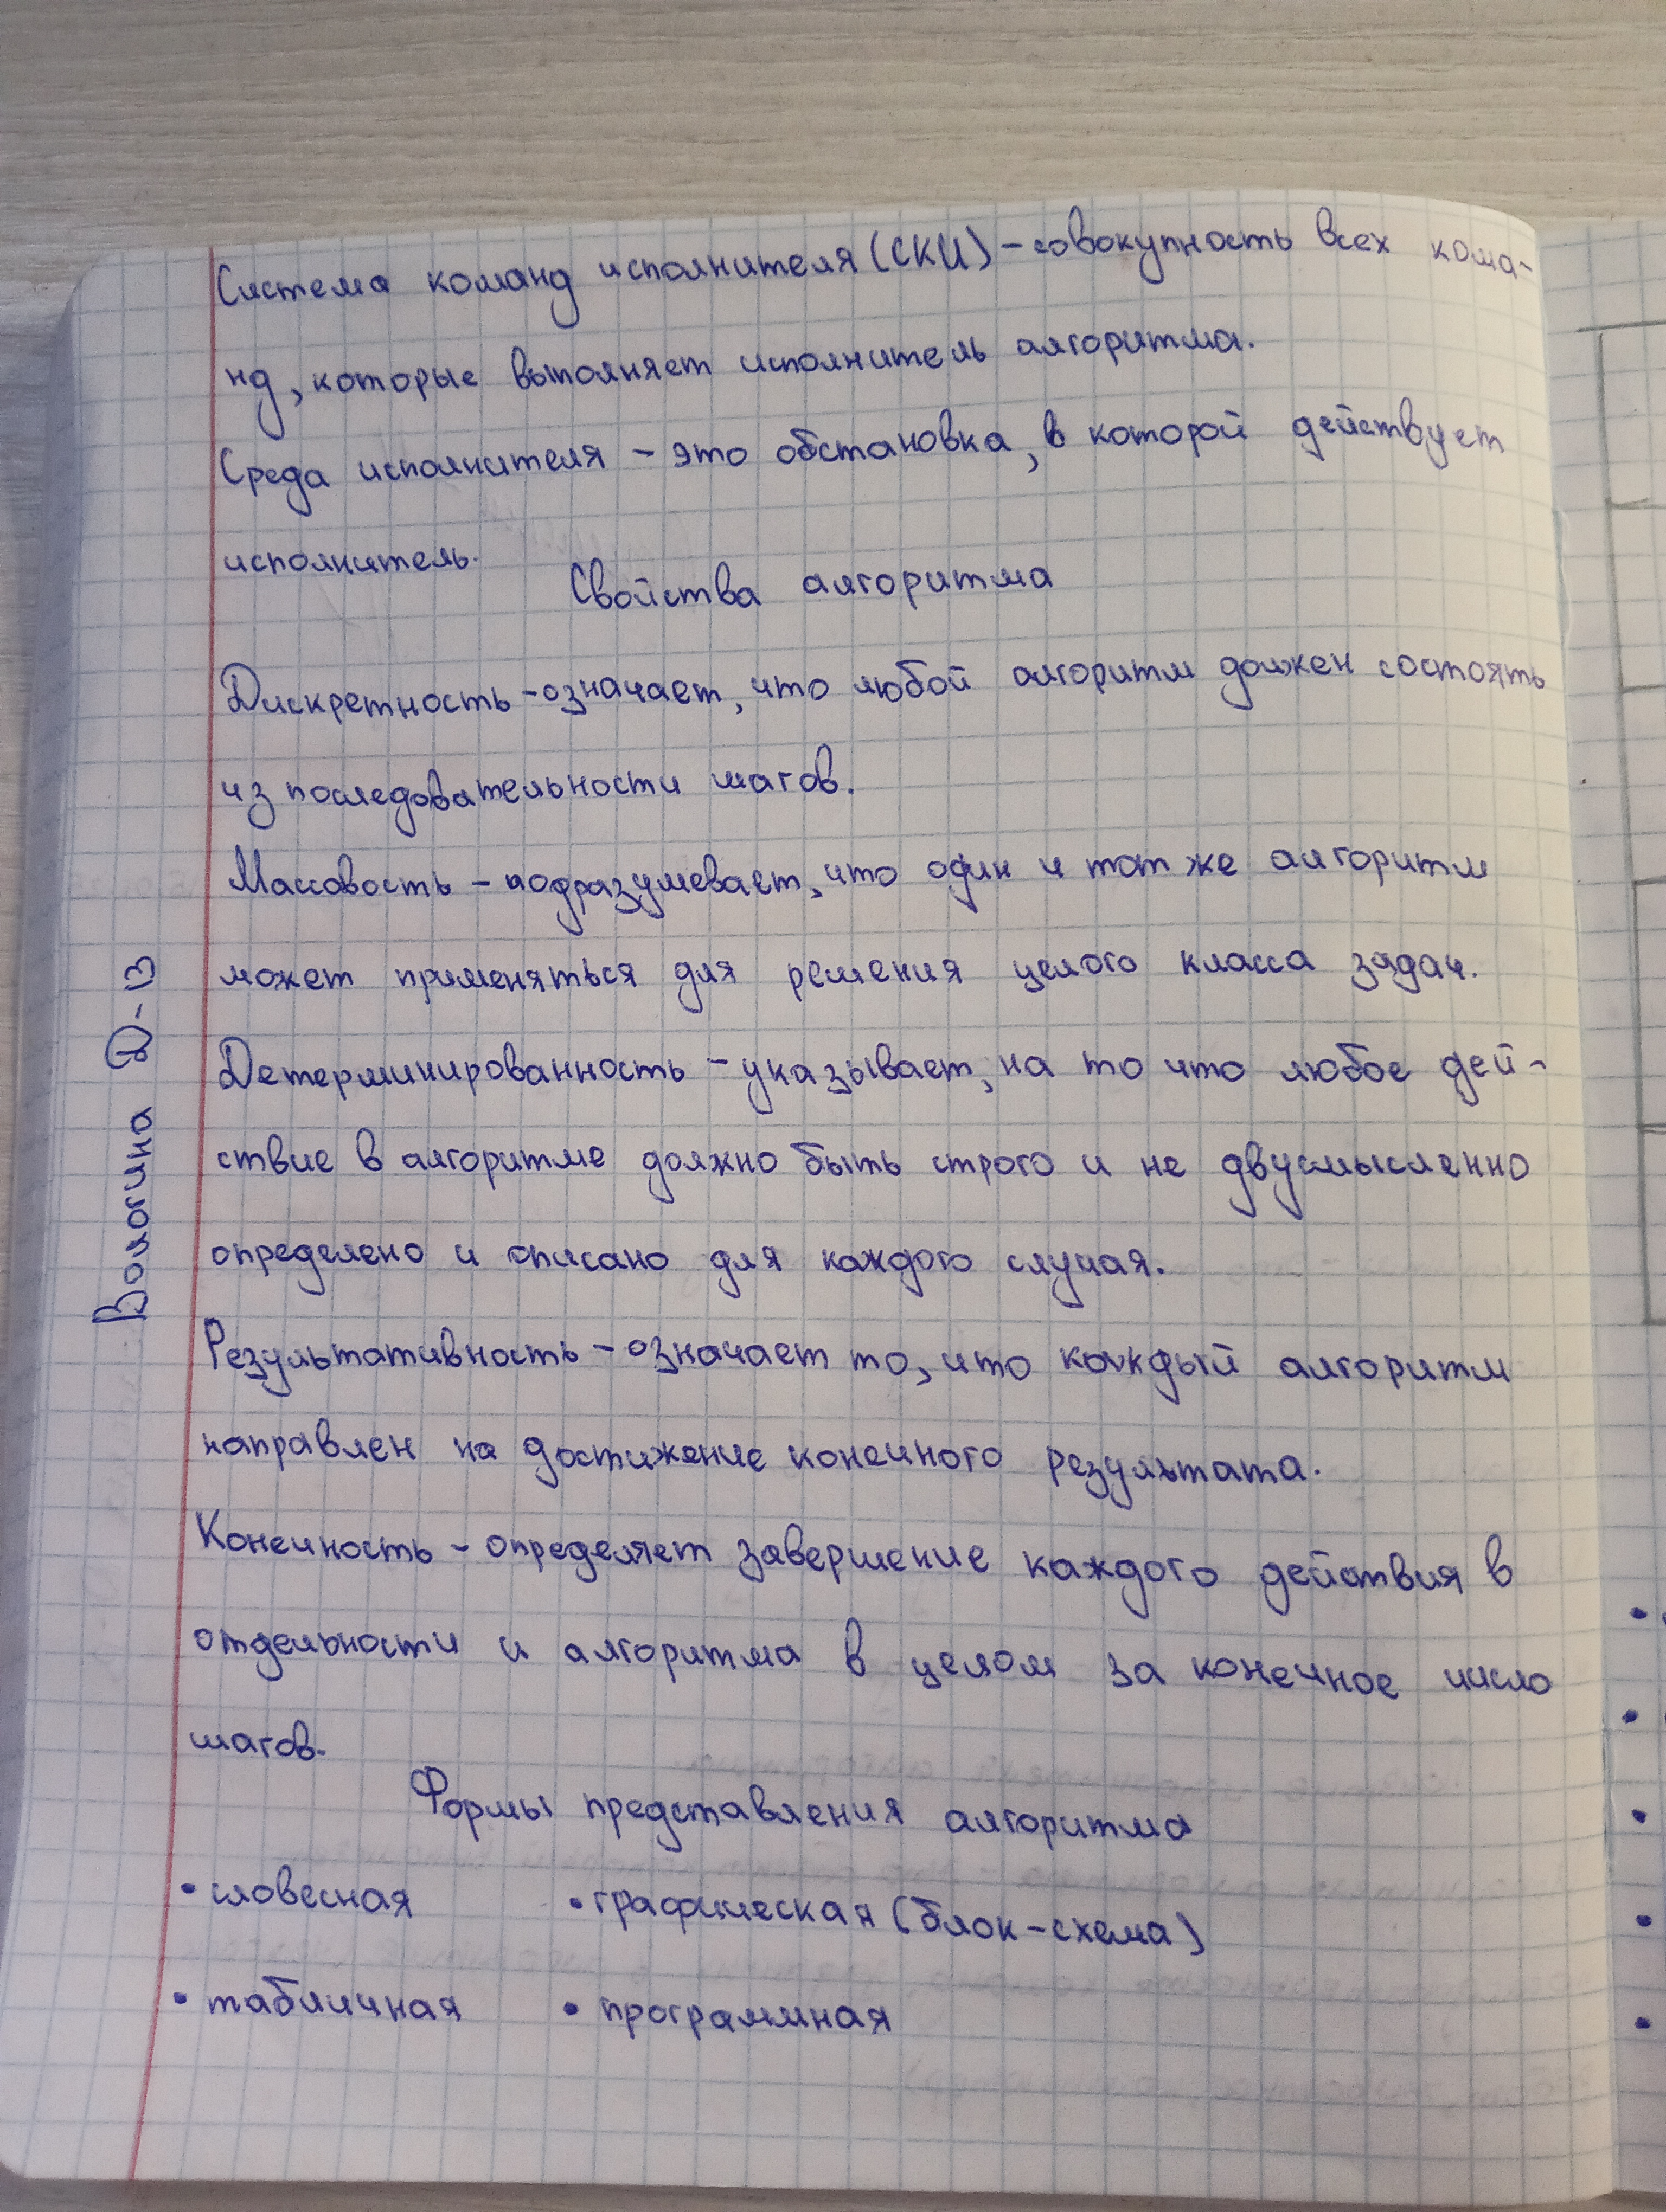 Система команд исполнителя (СКИ) – совокупность всех кома-
нд, которые выполняет исполнитель алгоритма.
Среда исполнителя – это обстановка, в которой действует
исполнитель.
Свойства алгоритма
Дискретность – означает, что любой алгоритм должен состоять
из последовательности шагов.
Массовость – подразумевает, что один и тот же алгоритм
может применяться для решения целого класса задач.
Детерминированность – указывает, на то что любое дей-
ствие в алгоритме должно быть строго и не двусмысленно
определено и описано для каждого случая.
Результативность – означает то, что каждый алгоритм
направлен на достижение конечного результата.
Конечность – определяет завершение каждого действия в
отдельности и алгоритма в целом за конечное число
шагов.
Формы представления алгоритма
• словесная • графическая (блок-схема)
• табличная • программная
Вологина Д-В